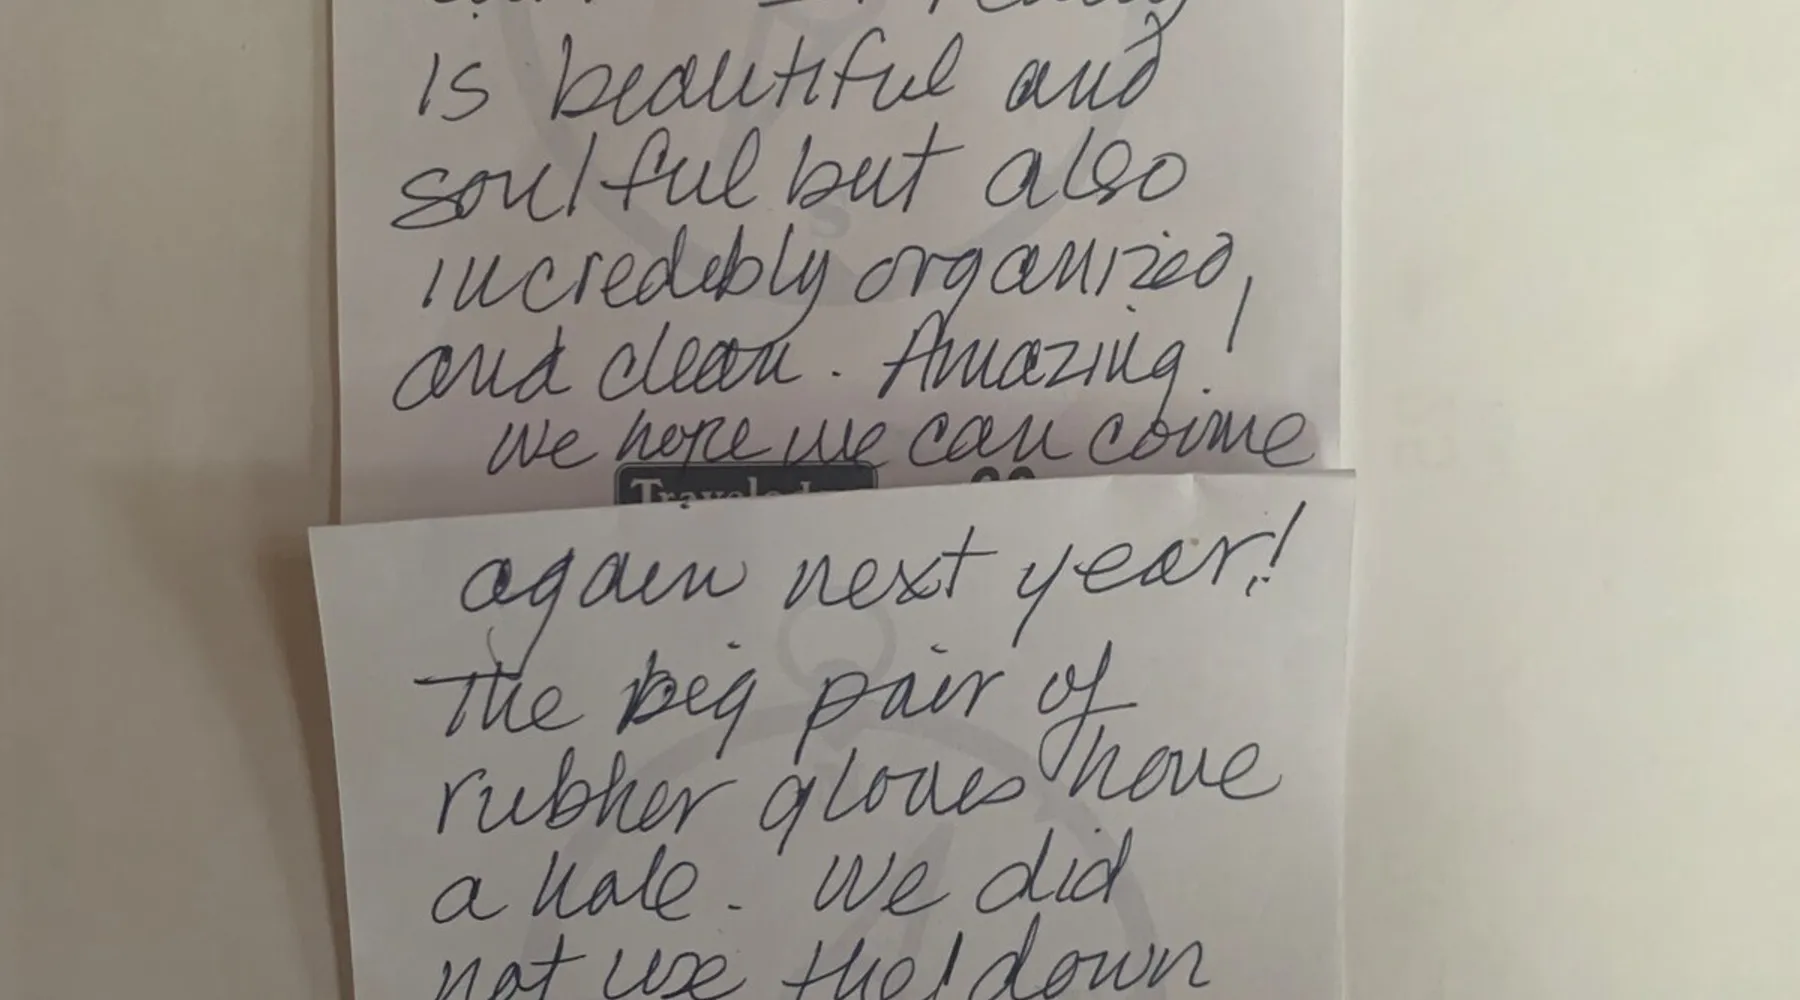 is beautiful and
soulful but also
incredebly organized,
and clean. Amazing!
We hope we can coime
again next year!
The big pair of
rubher gloves have
a hole. We did
not use the down